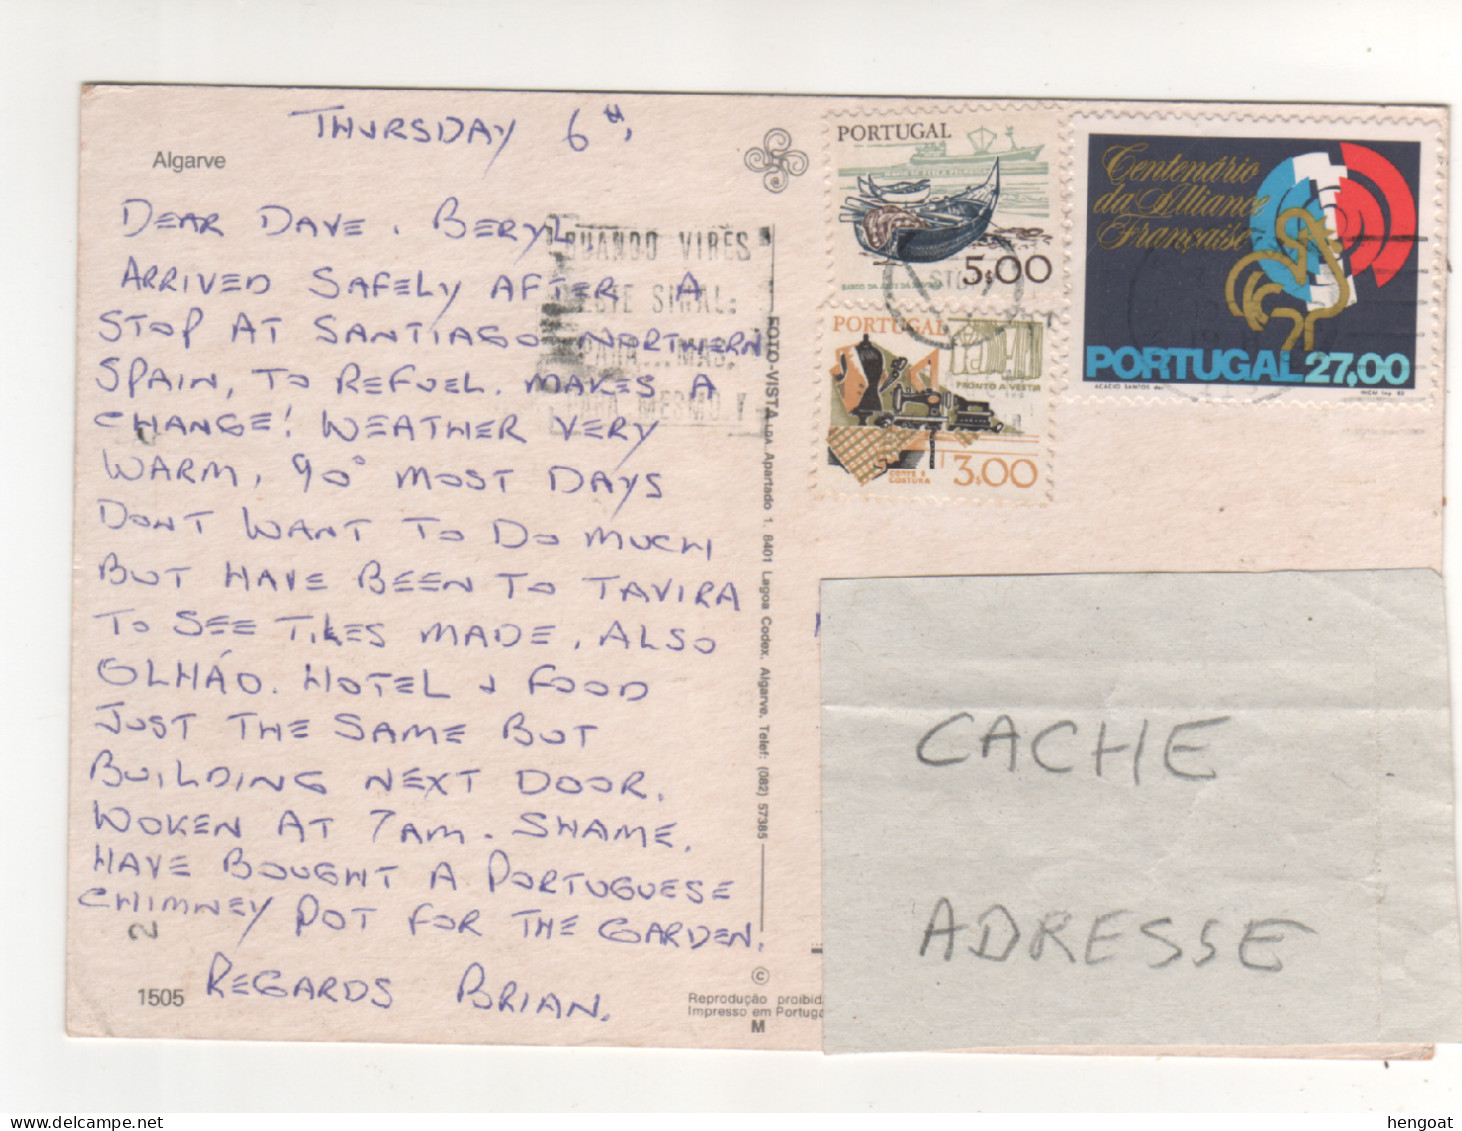 Algarve
THURSDAY 6TH,
DEAR DAVE, BERYL
ARRIVED SAFELY AFTER A
STOP AT SANTIAGO NORTHERN
SPAIN, TO REFUEL. MAKES A
CHANGE! WEATHER VERY
WARM, 90° MOST DAYS
DONT WANT TO DO MUCH
BUT HAVE BEEN TO TAVIRA
TO SEE TILES MADE, ALSO
OLHÁO. HOTEL & FOOD
JUST THE SAME BUT
BUILDING NEXT DOOR.
WOKEN AT 7AM. SHAME.
HAVE BOUGHT A PORTUGUESE
CHIMNEY POT FOR THE GARDEN.
REGARDS BRIAN.
2
1505
QUANDO VIRES
ESTE SINAL:
PARA... MAS,
PARA MESMO!
FOTO-VISTA LDA. Apartado 1. 8401 Lagoa Codex. Algarve. Telef: (082) 57385
©
Reprodução proibida
Impresso em Portuga
M
PORTUGAL
5$00
PORTUGAL
PRONTO A VESTIR
CORTE E
COSTURA
3$00
Centenário
da Alliance
Française
PORTUGAL 27,00
ACÁCIO SANTOS des.
INCM Imp. 83
CACHE
ADRESSE
hengoat